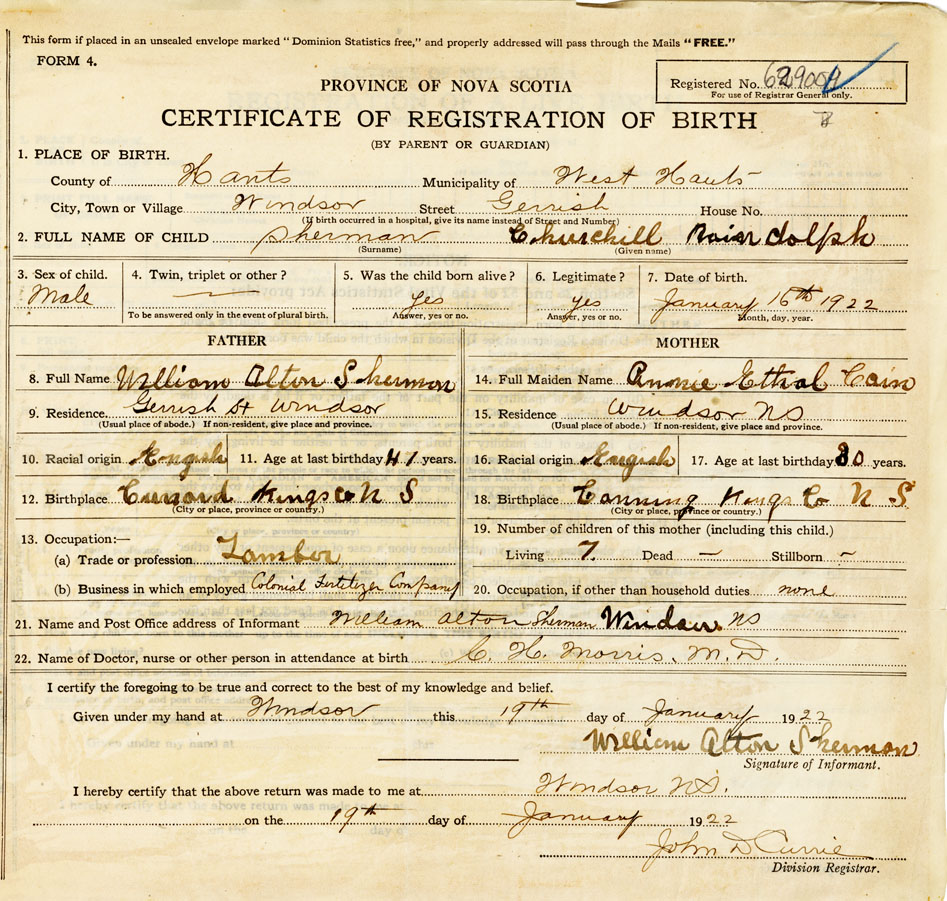 This form if placed in an unsealed envelope marked "Dominion Statistics free," and properly addressed will pass through the Mails "FREE."
FORM 4.
PROVINCE OF NOVA SCOTIA
Registered No.
For use of Registrar General only.
CERTIFICATE OF REGISTRATION OF BIRTH
(BY PARENT OR GUARDIAN)
1. PLACE OF BIRTH.
County of Hants Municipality of West Hants
City, Town or Village Windsor Street Gerrish House No.
(If birth occurred in a hospital, give its name instead of Street and Number)
2. FULL NAME OF CHILD Sherman Churchill Raindolph
(Surname) (Given name)
3. Sex of child. 4. Twin, triplet or other? 5. Was the child born alive? 6. Legitimate? 7. Date of birth.
Male — yes yes January 16th 1922
To be answered only in the event of plural birth. Answer, yes or no. Answer, yes or no. Month, day, year.
FATHER MOTHER
8. Full Name William Alton Sherman 14. Full Maiden Name Annie Ethal Cain
9. Residence Gerrish St Windsor 15. Residence Windsor NS
(Usual place of abode.) If non-resident, give place and province. (Usual place of abode.) If non-resident, give place and province.
10. Racial origin 11. Age at last birthday 41 years. 16. Racial origin 17. Age at last birthday years.
12. Birthplace Kings Co N S 18. Birthplace Canning Kings Co N S
(City or place, province or country.) (City or place, province or country.)
13. Occupation:— 19. Number of children of this mother (including this child.)
(a) Trade or profession Living 7 Dead — Stillborn –
(b) Business in which employed Colonial Fertelizer Company 20. Occupation, if other than household duties none
21. Name and Post Office address of Informant William Alton Sherman Windsor NS
22. Name of Doctor, nurse or other person in attendance at birth C. H. Morris, M.D.
I certify the foregoing to be true and correct to the best of my knowledge and belief.
Given under my hand at Windsor this 19th day of January 1922
William Alton Sherman
Signature of Informant.
I hereby certify that the above return was made to me at Windsor NS.
on the 19th day of January 1922
John D Currie
Division Registrar.